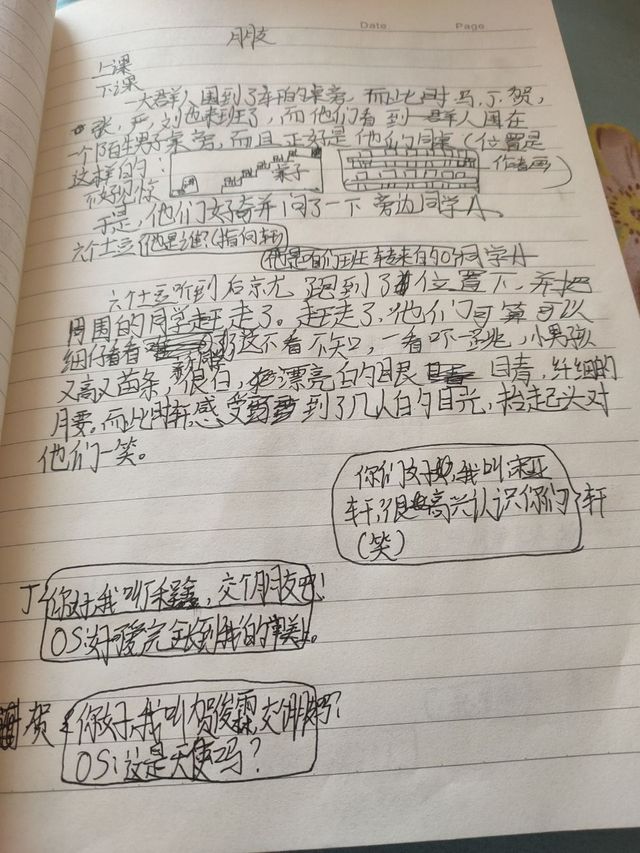 Date Page
朋友
上课
下课
一大群人围到了轩的桌旁，而此时马，丁，贺，
张，严，刘也来班了，而他们看到一群人围在
一个陌生男子桌旁，而且正好是他们的同桌（位置是
这样的：
桌子
作者画）
于是，他们好奇并问了一下旁边同学A、
六个士豆 他是谁？（指向轩）
他是咱们班转来的 同学A
六个士豆听到后京尤跑到了位置下，并把
周围的同学赶走了。赶走了，他们可算可以
细仔看看 这不看不知，一看吓一跳，小男孩
又高又苗条，很白，漂亮的眼睛，纤细的
腰。而此时轩感受到了几人的目光，抬起头对
他们一笑。
你们好，我叫宋亚
轩，很高兴认识你们 轩
（笑）
丁 你好，我叫丁程鑫，交个朋友吧！
OS：好可爱完全长到我的审美上。
贺 你好，我叫贺俊霖，交个朋友吗？
OS：这是天使吗？